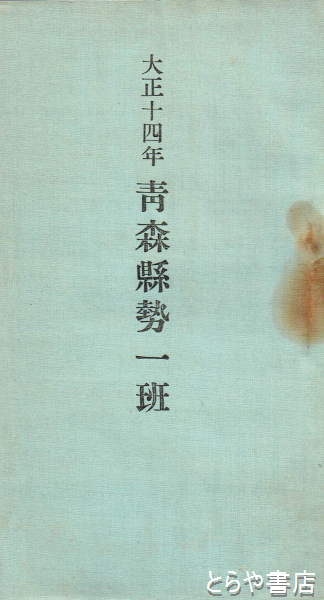 大正十四年 靑森縣勢一班
とらや書店